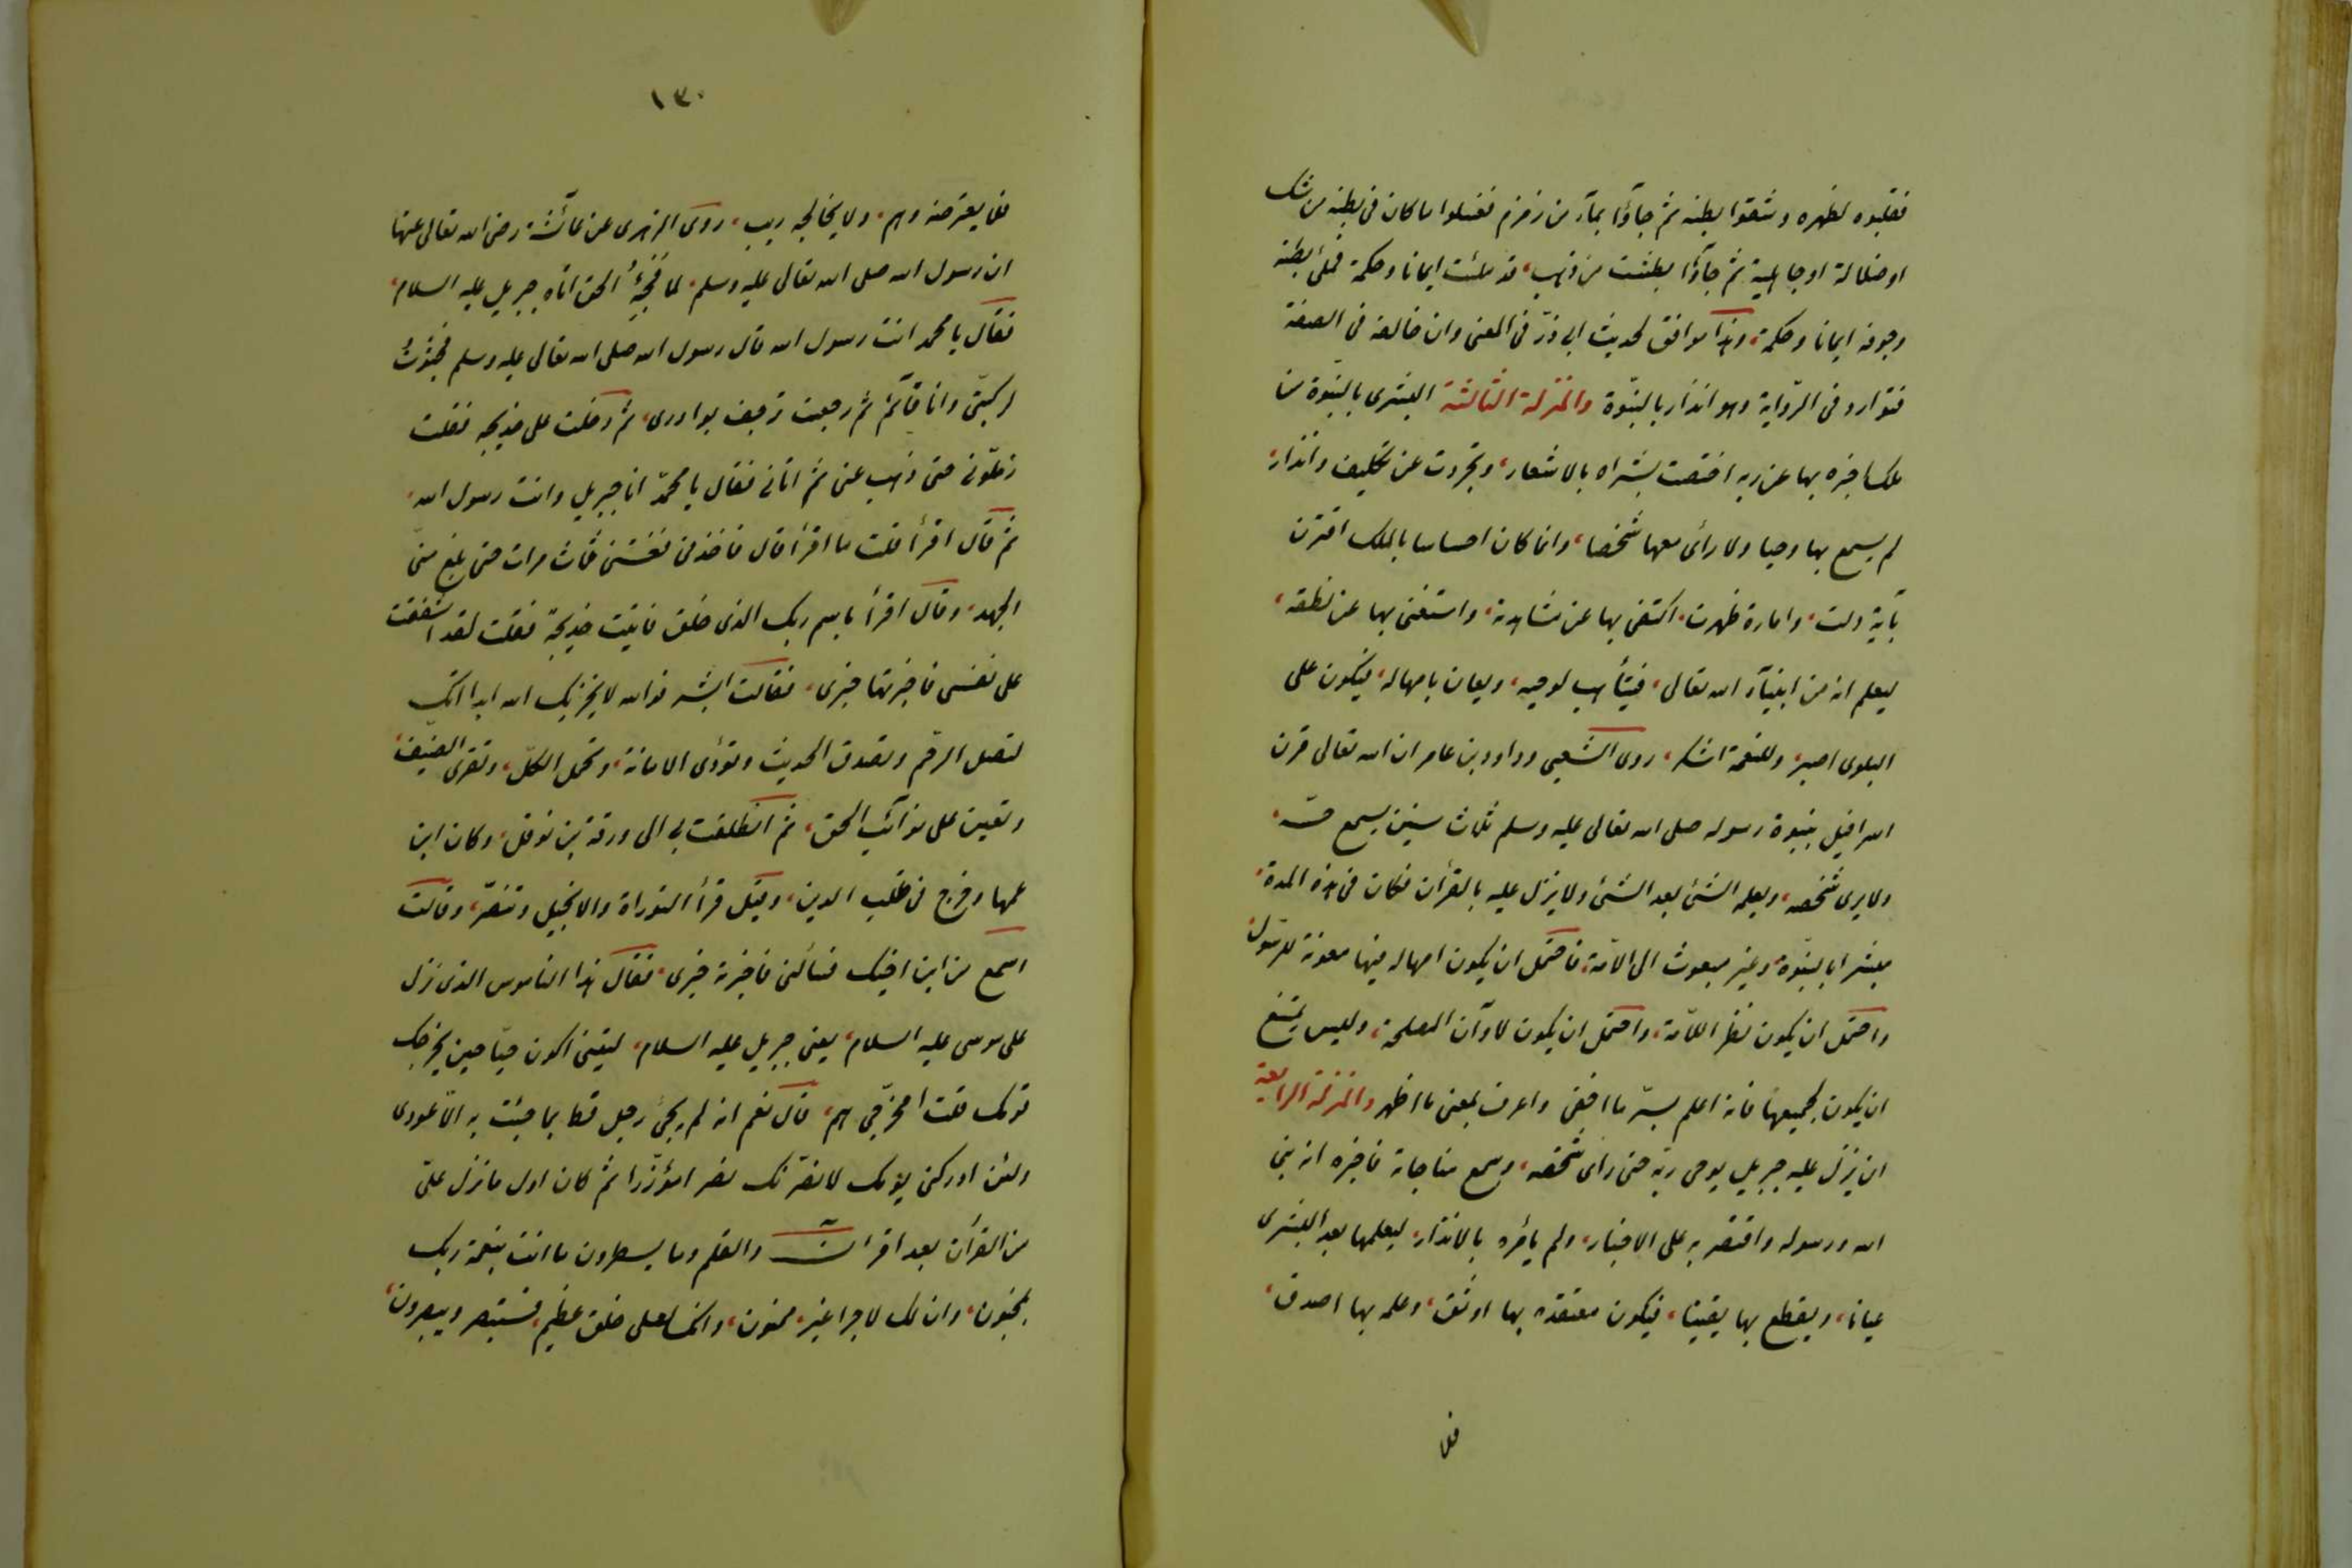 فقلبوه لظهره وشقوا بطنه ثم جاؤا بمآء من زمزم فغسلوا ما كان فى بطنه من شك
او ضلالة او جاهلية ثم جاؤا بطشت من ذهب، قد ملئت ايمانا وحكمة فملئ بطنه
وجوفه ايمانا وحكمة، وهذا موافق لحديث ابى ذرّ فى المعنى وان خالفه فى الصفة
فتوارد فى الرّواية وهو انذار بالنبّوة والمنزلة الثالثة البشرى بالنبّوة من
ملك اخبره بها عن ربه اختصت بشراه بالاشعار، وتجردت عن تكليف وانذار،
لم يسمع بها وحيا ولا رأى معها شخصا، وانما كان احساسا بالملك اقترن
بآية دلت، وامارة ظهرت، اكتفى بها عن مشاهدته، واستغنى بها عن نطقه،
ليعلم انه من انبيآء الله تعالى، فيتأهب لوحيه، ويعان بامهاله، فيكون على
البلوى اصبر، وللنعمة اشكر، روى الشعبى وداود بن عامر ان الله تعالى قرن
اسرافيل بنبوة رسوله صلى الله تعالى عليه وسلم ثلاث سنين يسمع حسّه،
ولا يرى شخصه، ويعلمه الشئ بعد الشئ ولا ينزل عليه بالقرأن فكان فى هذه المدة،
مبشرا بالنبّوة، وغير مبعوث الى الامّة، فاحتمل ان يكون امهاله فيها معونة للرسّول،
واحتمل ان يكون نظرا للامّة، واحتمل ان يكون لاوآن المصلحة، وليس يمتنع
ان يكون لجميعها فانه اعلم بسرّ ما اخفى واعرف بمعنى ما اظهر والمنزلة الرابعة
ان ينزل عليه جبريل بوحى ربّه حتى راى شخصه، وسمع مناجاته فاخبره انه نبى
الله ورسوله واقتصر به على الاخبار، ولم يأمره بالانذار، ليعلمها بعد البشرى
عيانا، ويقطع بها يقينا، فيكون معتقده بها اوثق، وعلمه بها اصدق،
فلا
١٣٠
فلا يعترضه وهم، ولا يخالجه ريب، روى الزهرى عن عائشة رضى الله تعالى عنها
ان رسول الله صلى الله تعالى عليه وسلم، لما فَجِئَهُ الحق اتاه جبريل عليه السلام،
فقال يا محمد انت رسول الله قال رسول الله صلى الله تعالى عليه وسلم فجثوتُ
لركبتّى وانا قآئم ثم رجعت ترجف بوادرى، ثم دخلت على خديجه فقلت
زملّونى حتى ذهب عنى ثم اتانى فقال يا محمّد انا جبريل وانت رسول الله،
ثم قال اقرأ قلت ما اقرأ قال فاخذنى فغتنى ثلاث مرات حتى بلغ منّى
الجهد، وقال اقرأ باسم ربك الذى خلق فاتيت خديجة فقلت لقد اشفقت
على نفسى فاخبرتها خبرى، فقالت ابشر فوالله لا يخزيك الله ابدا انك
لتصل الرحم وتصدق الحديث وتؤدى الامانة، وتحمل الكلّ، وتقرى الضيف،
وتعين على نوآئب الحق، ثم انطلقت بى الى ورقة بن نوفل، وكان ابن
عمها وخرج فى طلب الدين، وقيل قرأ التوراة والانجيل وتنصّر، وقالت
اسمع من ابن اخيك فسألنى فاخبرته خبرى، فقال هذا الناموس الذى نزل
على موسى عليه السلام، يعنى جبريل عليه السلام، ليتنى اكون حيّا حين يخرجك
قومك قلت ا مخرجّى هم، قال نعم انه لم يجئ رجل قط بما جئت به الّا عودى
ولئن ادركنى يومك لانصرّنك نصرا مؤزّرا ثم كان اول ما نزل علىّ
من القرأن بعد اقرا نٓ والقلم وما يسطرون ما انت بنعمة ربك
بمجنون، وان لك لاجرا غير ممنون، وانك لعلى خلق عظيم، فستبصر ويبصرون،